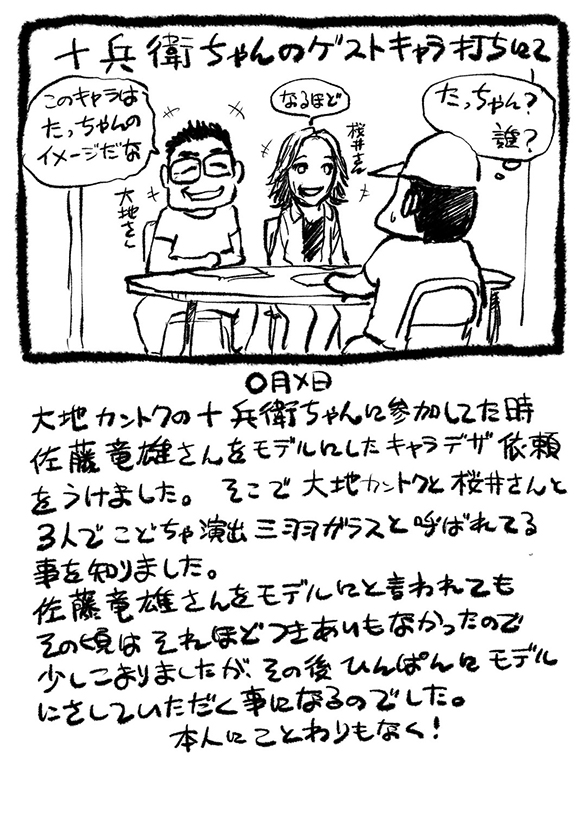 十兵衛ちゃんのゲストキャラ打ちにて
このキャラは
たっちゃんの
イメージだな
なるほど
たっちゃん？
誰？
大地さん
桜井さん
〇月×日
大地カントクの十兵衛ちゃんに参加してた時
佐藤竜雄さんをモデルにしたキャラデザ依頼
をうけました。そこで大地カントクと桜井さんと
3人でこどちゃ演出三羽ガラスと呼ばれてる
事を知りました。
佐藤竜雄さんをモデルにと言われても
その頃はそれほどつきあいもなかったので
少しこまりましたが、その後ひんぱんにモデル
にさしていただく事になるのでした。
本人にことわりもなく！